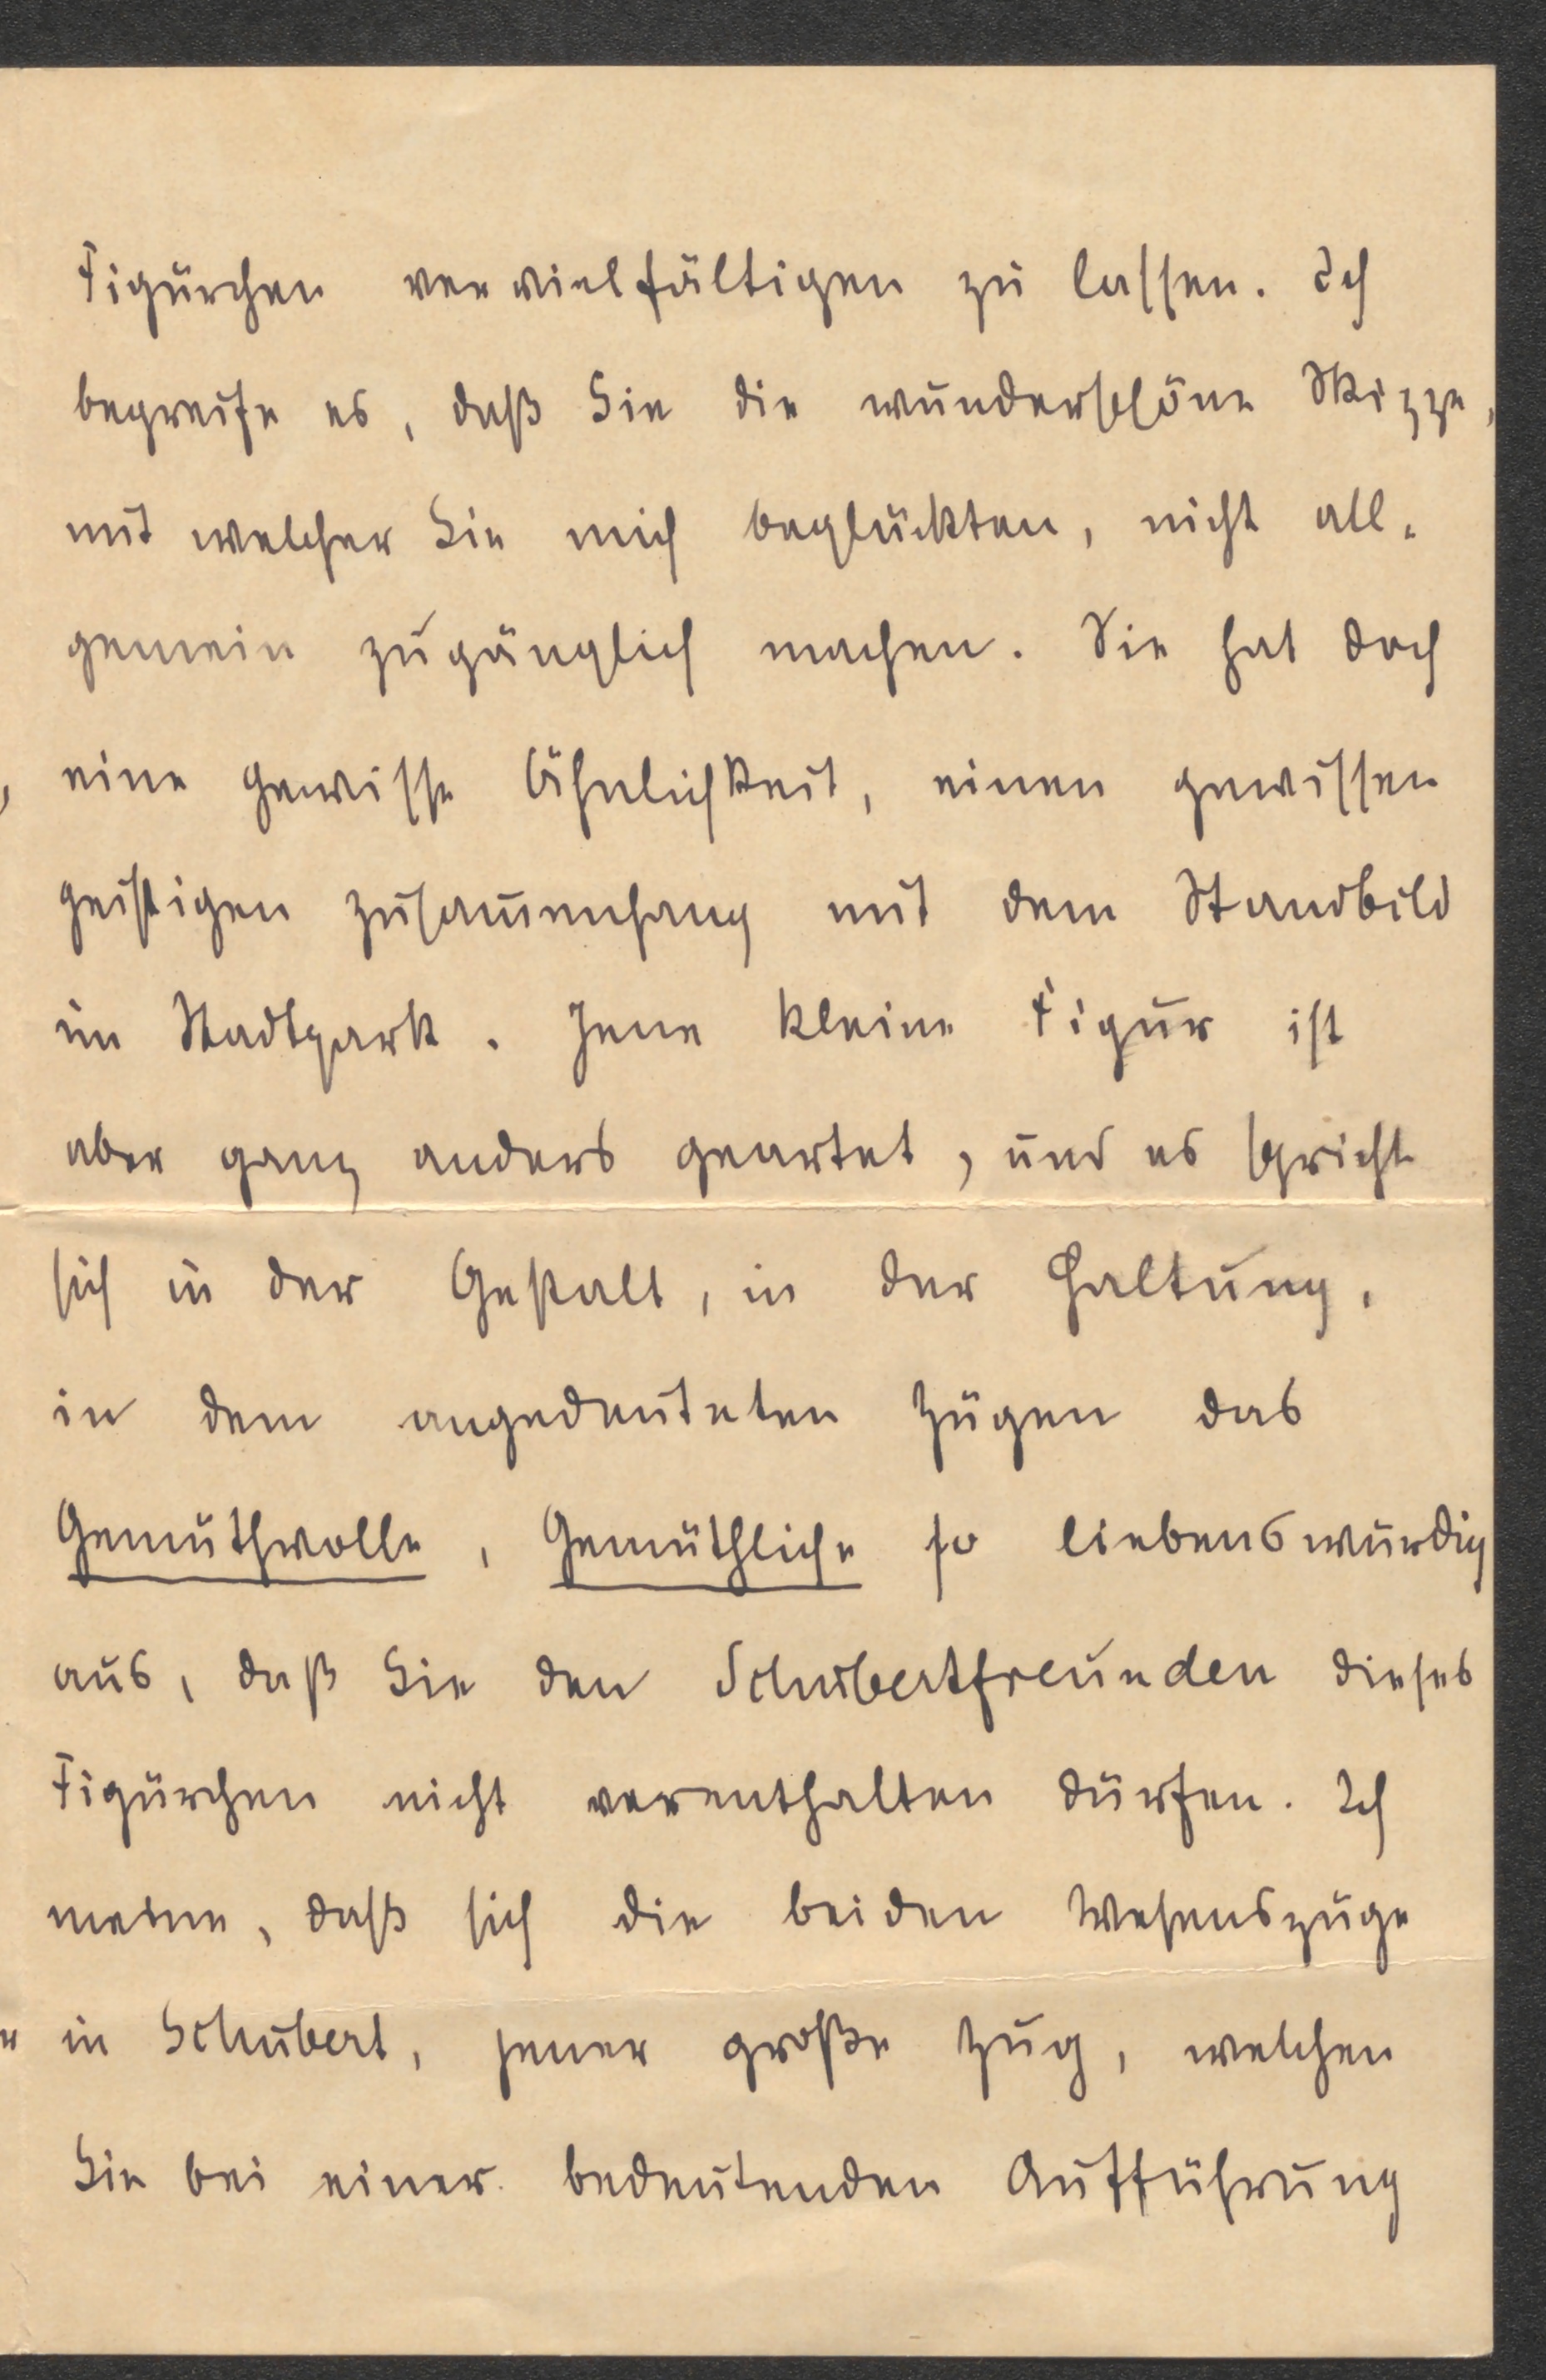 Figürchen vervielfältigen zu lassen. Ich
begreife es, daß Sie die wunderschöne Skizze,
mit welcher Sie mich beglückten, nicht all-
gemein zugänglich machen. Sie hat doch
eine gewisse Ähnlichkeit, einen gewissen
geistigen Zusam̅enhang mit dem Standbild
im Stadtpark. Jene kleine Figur ist
aber ganz anders geartet, und es spricht
sich in der Gestalt, in der Haltung,
in dem angedeuteten Zügen das
Gemüthvolle, Gemüthliche so liebenswürdig
aus, daß Sie den Schubertfreunden dieses
Figürchen nicht vorenthalten dürfen. Ich
meine, daß sich die beiden Wesenszüge
in Schubert, jener große Zug, welchen
Sie bei einer bedeutenden Aufführung